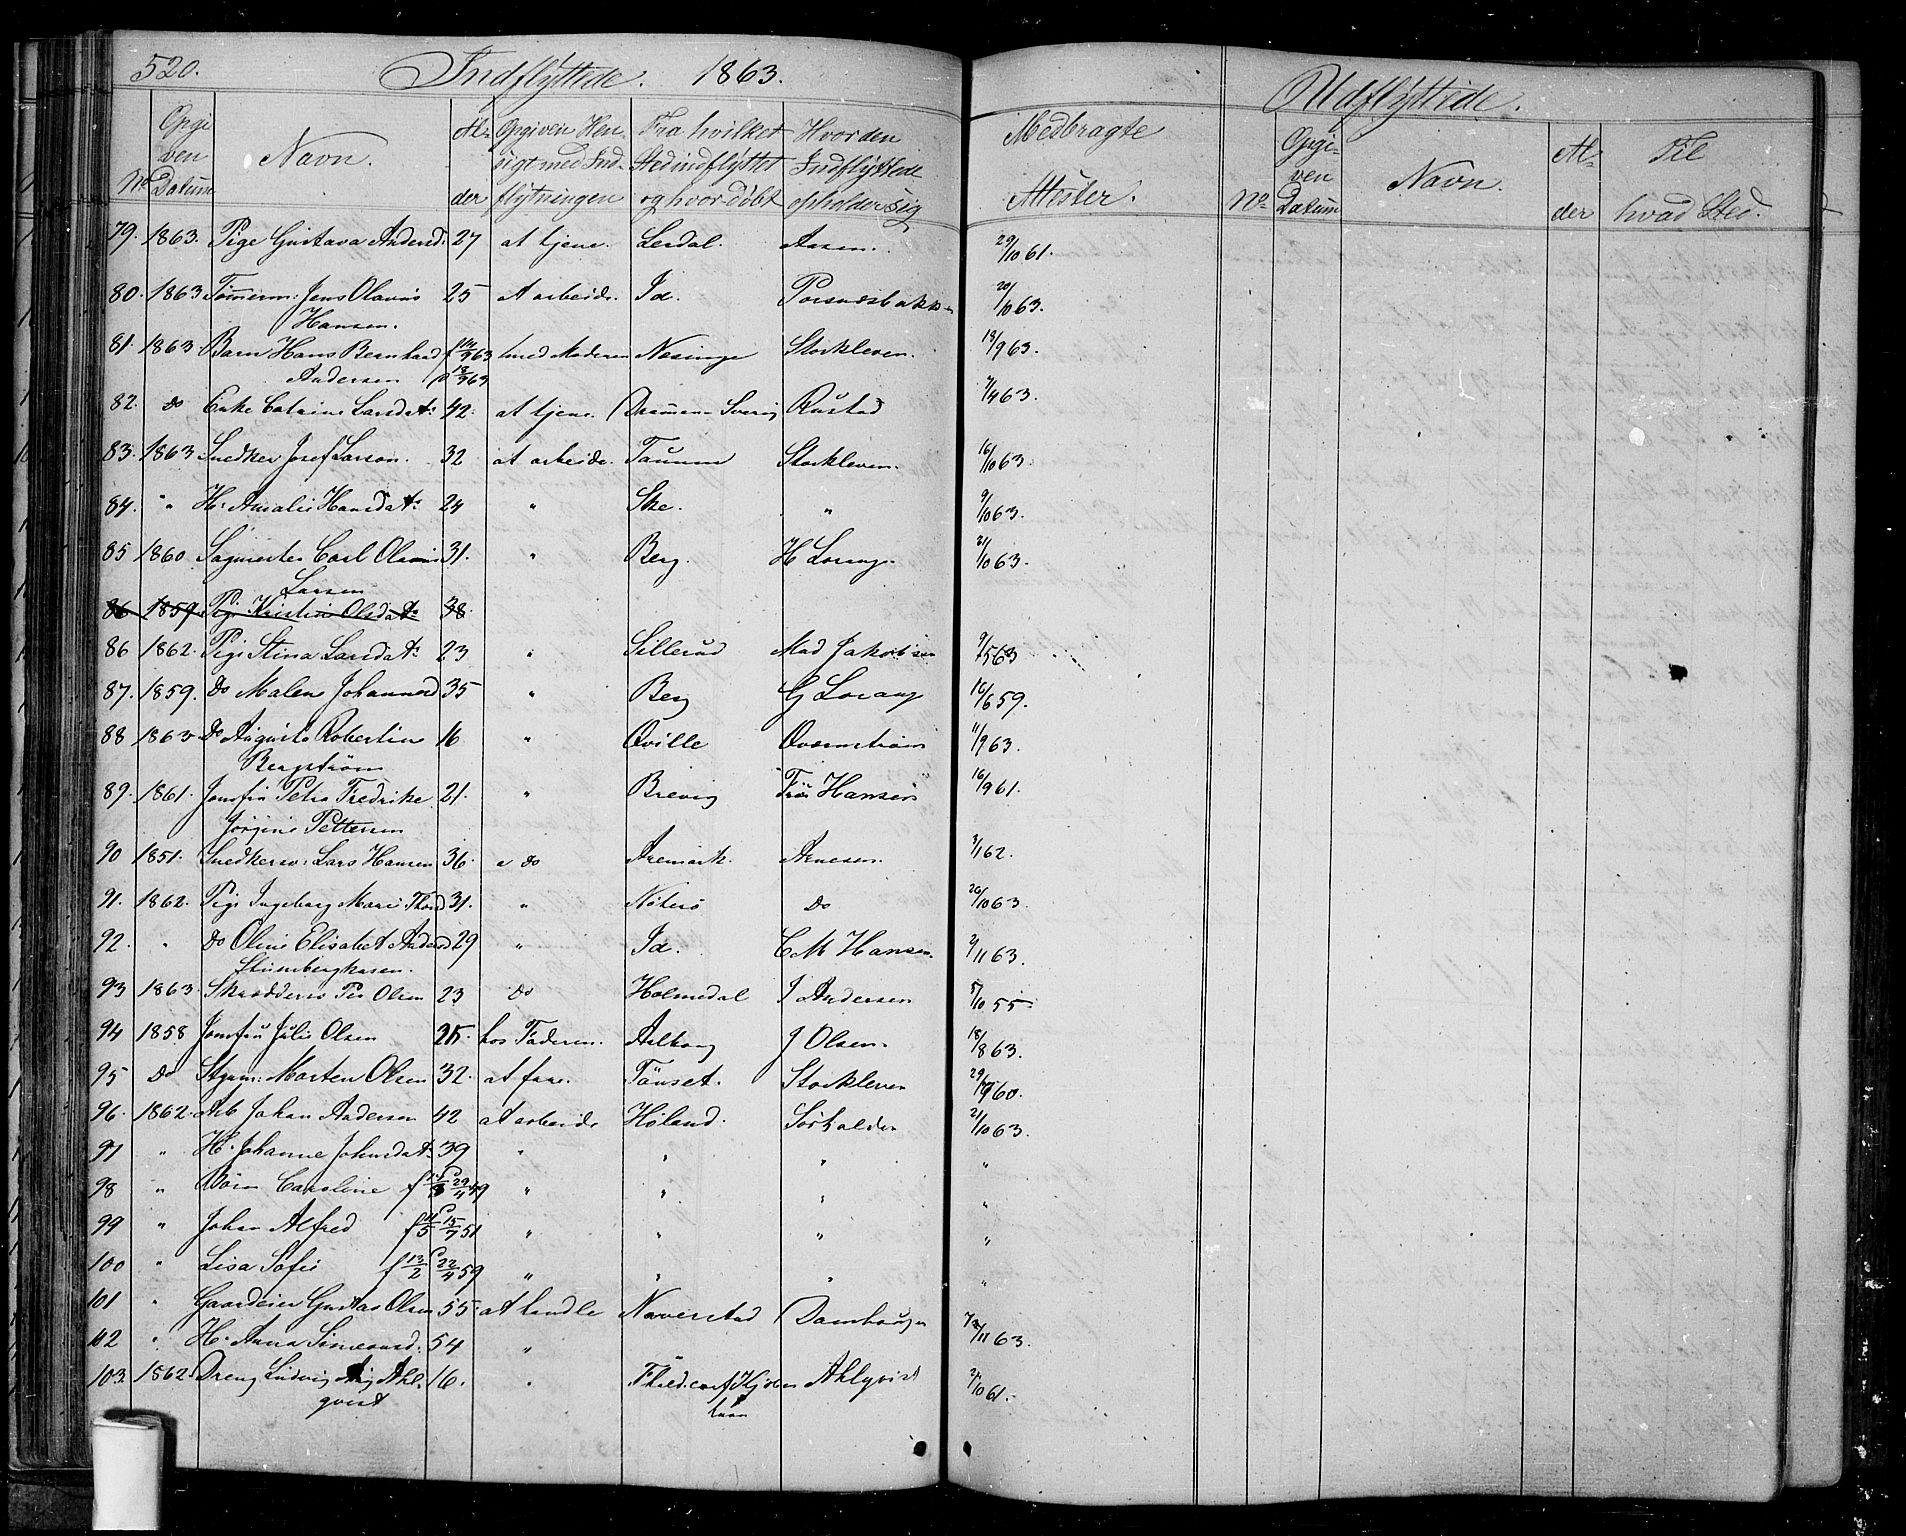 520. Indflyttede. 1863. Udflyttede.
No Opgiven Datum Navn. Alder Opgiven Hensigt med Indflytningen Fra hvilket Sted indflyttet og hvor døbt Hvor den Indflyttede opholder sig Medbragte Attester. No. Opgiven Datum Navn. Alder Til hvad Sted.
79. 1863. Pige Gustava Andersd. 27 at tjene. Lerdal. Aasen. 29/10 61.
80. 1863 Tømerm: Jens Olavus 25 At arbeide. Id. Porsnæsbakken 20/10 63.
Hansen.
81. 1863 Barn Hans Bernhard f 63 med Moderen Næsinge Storkleven. 13/9 63.
Andersen 63
82. Do Enke Catrine Larsdatr 42. at tjene. Sverig Rustad 7/4 63.
83. 1863 Snedker Josef Larson. 32 at arbeide. Tanum Storkleven. 16/10 63.
84. " H. Amalie Hansdatr 24 " Ske. " 9/10 63.
85 1860 Sagmester Carl Olavus 31. " Berg. H Lorang. 21/10 63.
Larsen
86 1859. Pige Kristine Olsdatr 38.
86 1862. Pige Stina Larsdatr 23 " Sillerud Mad Jakobsen 9/5 63
87. 1859. Do Malen Johannesd 35 " Berg G Lorang 16/6 59.
88 1863 Do Augusta Robertin 16 " Qville Qvarnstrøm 11/9 63.
Bergstrøm
89. 1861. Jomfru Petra Fredrike 21. " Brevig Fru Hansen 16/9 61.
Jørgine Pettersen
90 1851. Snedkersv: Lars Hansen 36. " Do Aremark. Arnesen. 3/1 62.
91. 1862. Pige Ingeborg Marie Thord 31. " Nøterø Do 26/10 63.
92. " Do Oline Elisabet Andersd 29 " Id. C M Hansen. 2/11 63.
93 1863. Skrædders Per Olsen 23 Do Holmedal J Andersen 5/10 55
94 1858 Jomfru Julie Olsen 25. hos Faderen. Aalborg J Olsen. 18/8 63.
95 Do Styrm: Morten Olsen 32. at fare. Tønset. Storkleven 60.
96. 1862. Arb Johan Andersen 42 at arbeide Høland. Sørhalden 21/10 63.
97 " H. Johanne Johnsdatr 39 " " " "
98 " Børn Caroline f 49 " " " "
99 " Johan Alfred f 51 " " " "
100 " Lisa Sofie f 13/2 22/4 59 " " " "
101 " Gaardeier Gustav Olsen 55. at handle Naverstad Damhaugen
102 " H. Anna Simeonsd. 54 " 11 63.
103. 1862. Dreng Ludvig Aug Ahl- 16. " Ahlqvist 10 61.
qvist